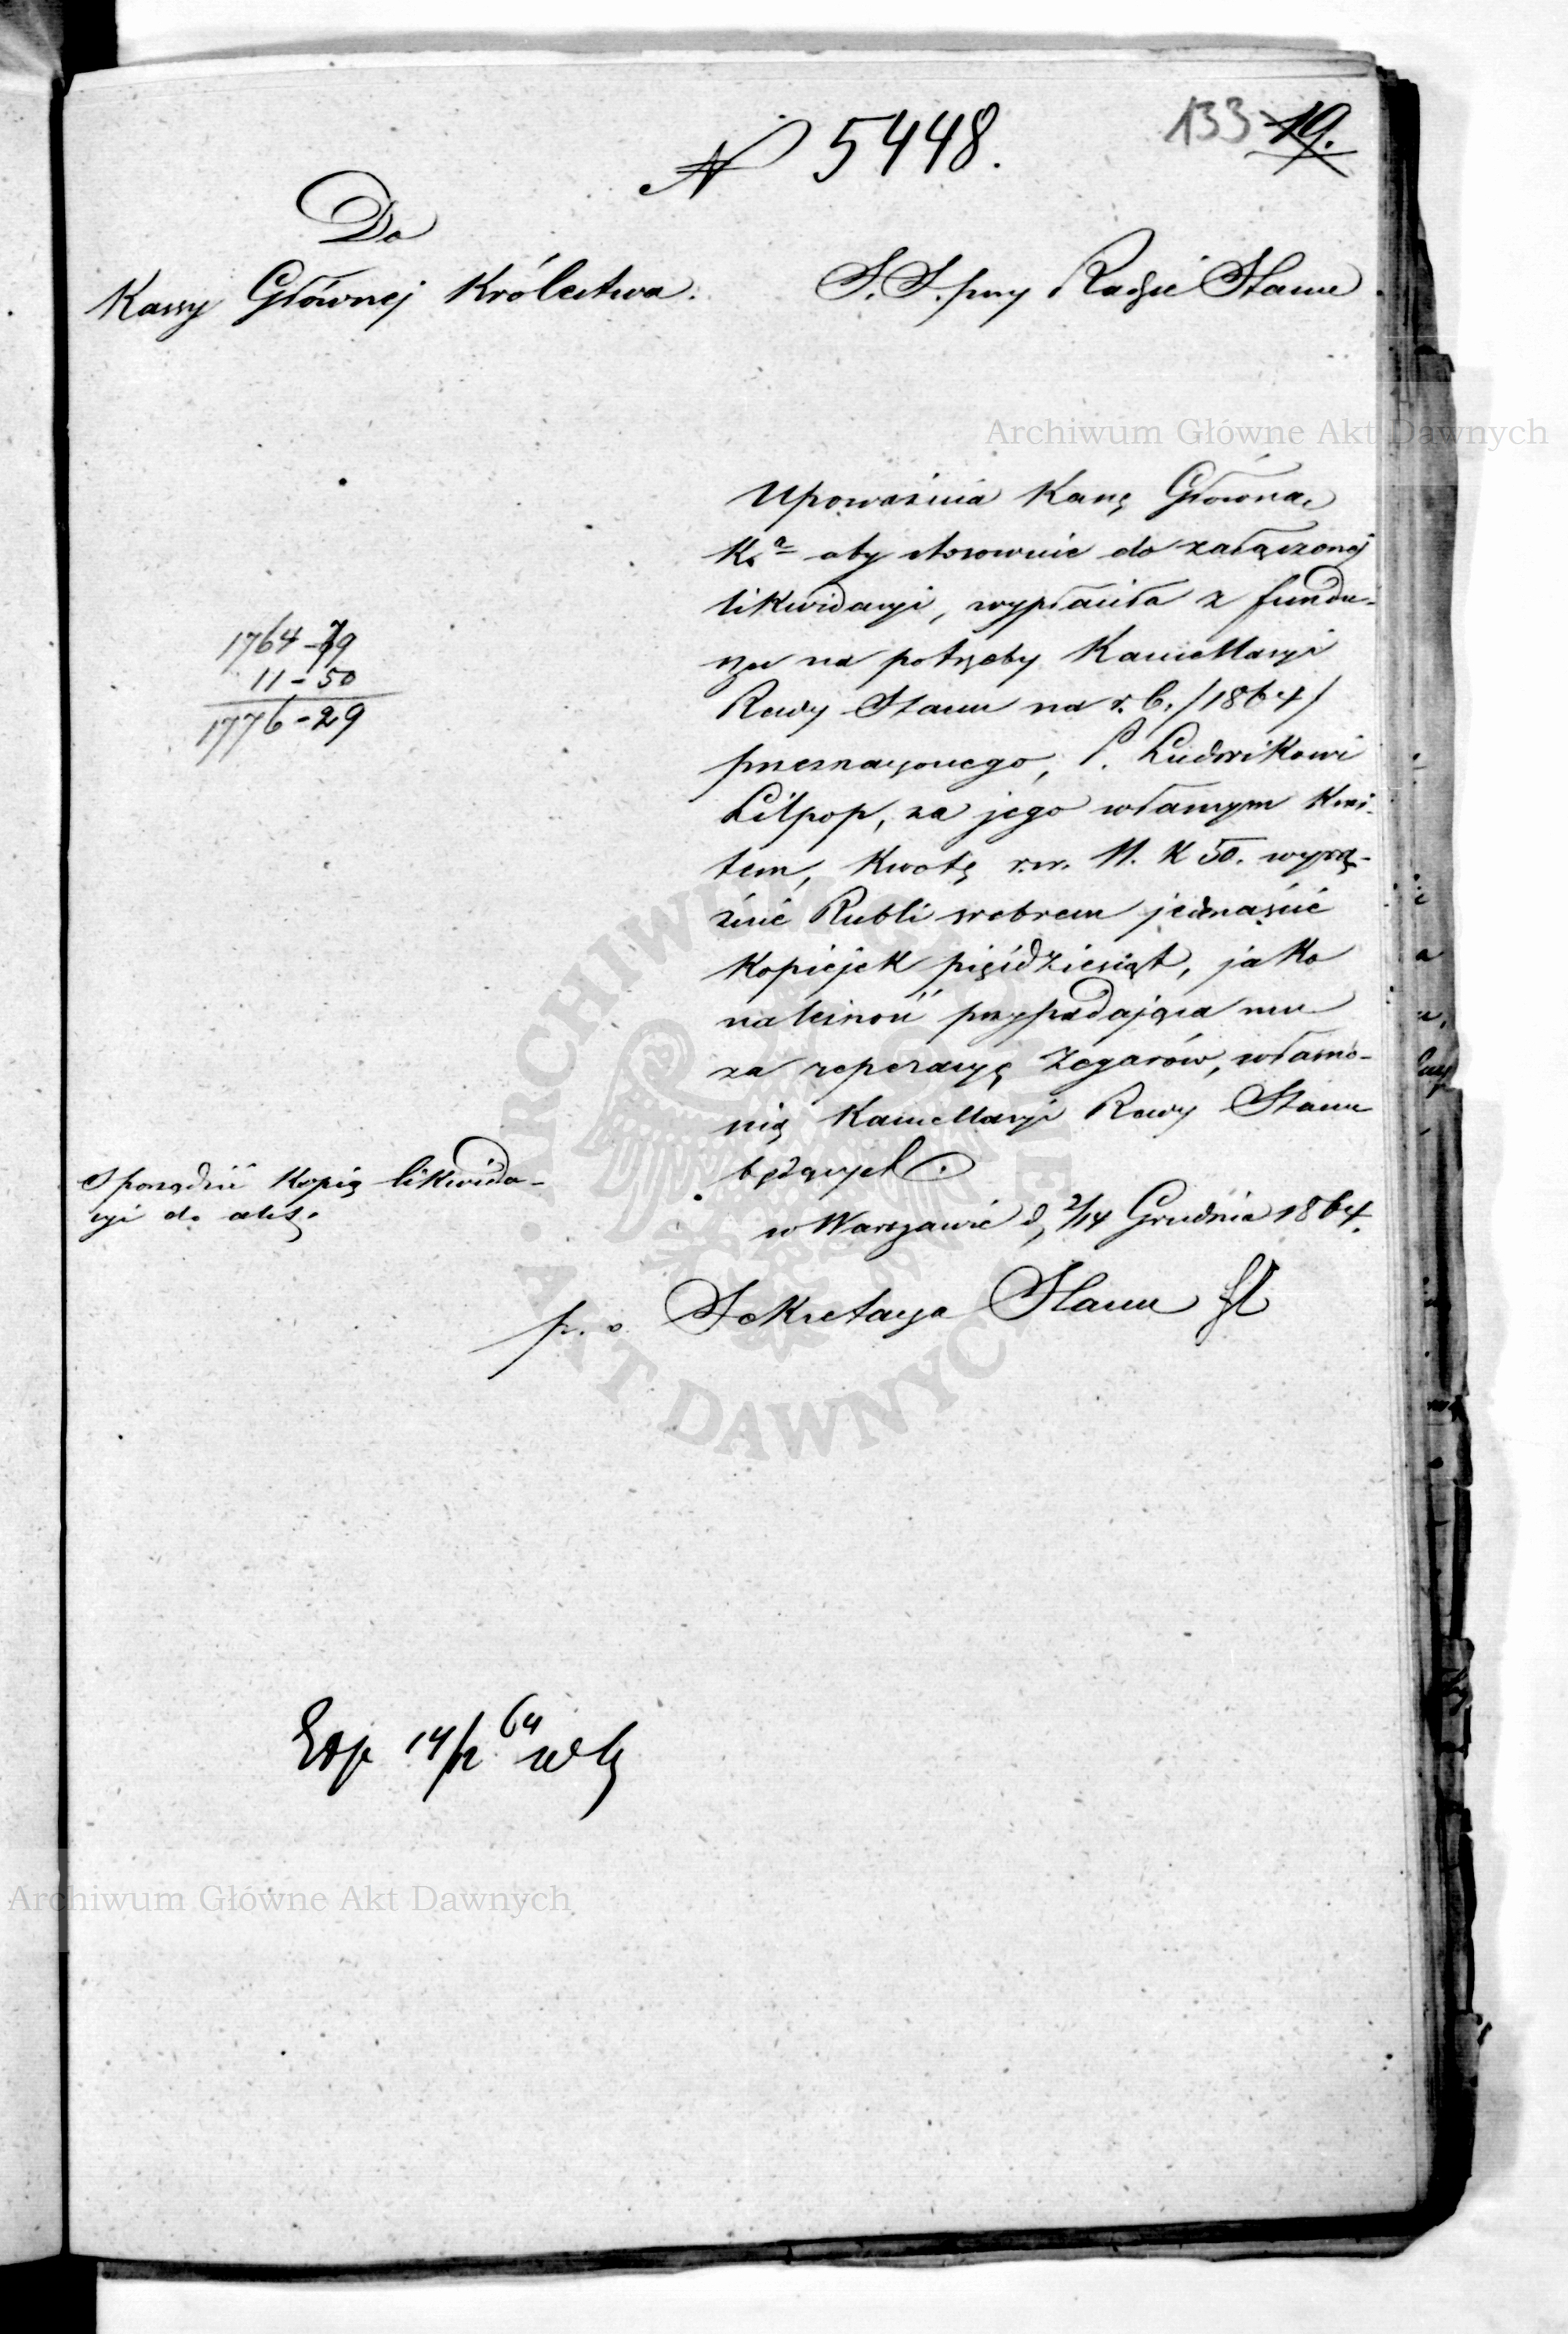 133 19.
N 5448.
Do
Kassy Głównej Królestwa.
S. S. przy Radzie Stanu
Upoważnia Kassę Główną
Kr. aby stosownie do załączonej
likwidacyi, wypłaciła z fundu-
szu na potrzeby Kancellaryi
Rady Stanu na r. b. /1864/
przeznaczonego, P. Ludwikowi
Lilpop, za jego własnym kwi-
tem, kwotę rsr. 11. K 50. wyra-
źnie Rubli srebrem jedenaście
kopiejek pięćdziesiąt, jako
należność przypadającą mu
za reperacyę zegarów, własno-
ścią Kancellaryi Rady Stanu
będących.
w Warszawie d. 2/14 Grudnia 1864.
p. o. Sekretarza Stanu
1764-79
11-50
1776-29
Sporządzić kopię likwida-
cyi do akt.
Exp 14/12 64
Archiwum Główne Akt Dawnych
ARCHIWUM GŁÓWNE AKT DAWNYCH
Archiwum Główne Akt Dawnych